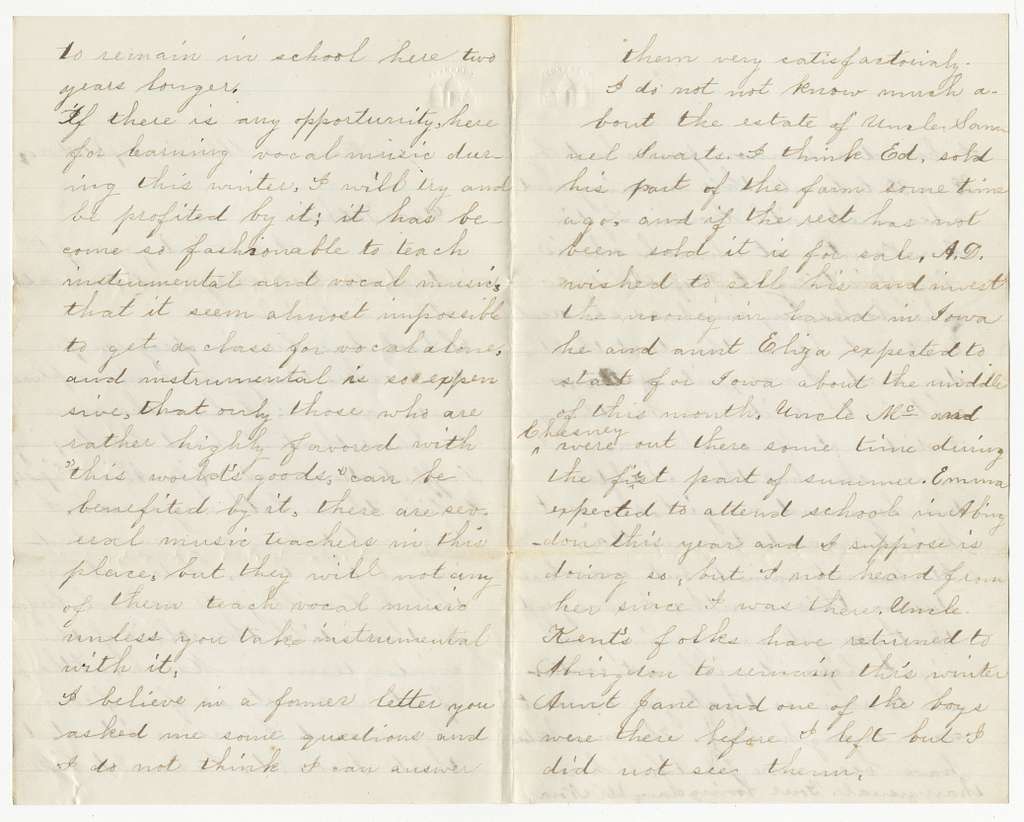 to remain in school here two
years longer.
If there is any opportunity here
for learning vocal music dur-
ing this winter, I will try and
be profited by it; it has be-
come so fashionable to teach
instrumental and vocal music,
that it seem almost impossible
to get a class for vocal alone,
and instrumental is so expen
sive, that only those who are
rather highly favored with
"this world's goods," can be
benefited by it. there are sev-
eral music teachers in this
place, but they will not any
of them teach vocal music
unless you take instrumental
with it.
I believe in a former letter you
asked me some questions and
I do not think I can answer
them very satisfactorialy.
I do not not know much a-
bout the estate of Uncle Sam
uel Swarts. I think Ed. sold
his part of the farm some time
ago. and if the rest has not
been sold it is for sale. A.D.
wished to sell his and invest
the money in land in Iowa
he and aunt Eliza expected to
start for Iowa about the middle
of this month. Uncle Mc and
Chesney
^ were out there some time during
the first part of summer. Emma
expected to attend school in Abing
-don this year and I suppose is
doing so, but I not heard from
her since I was there. Uncle
Kent's folks have returned to
Abingdon to remain this winter
Aunt Jane and one of the boys
were there before I left but I
did not see them.